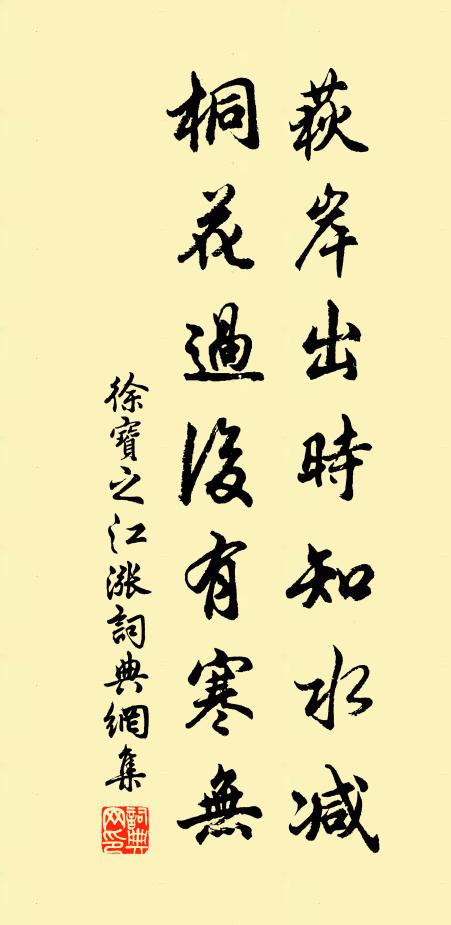 荻岸出時知水減
桐花過後有寒無
徐寶之江漲詞典網集
詞典網印